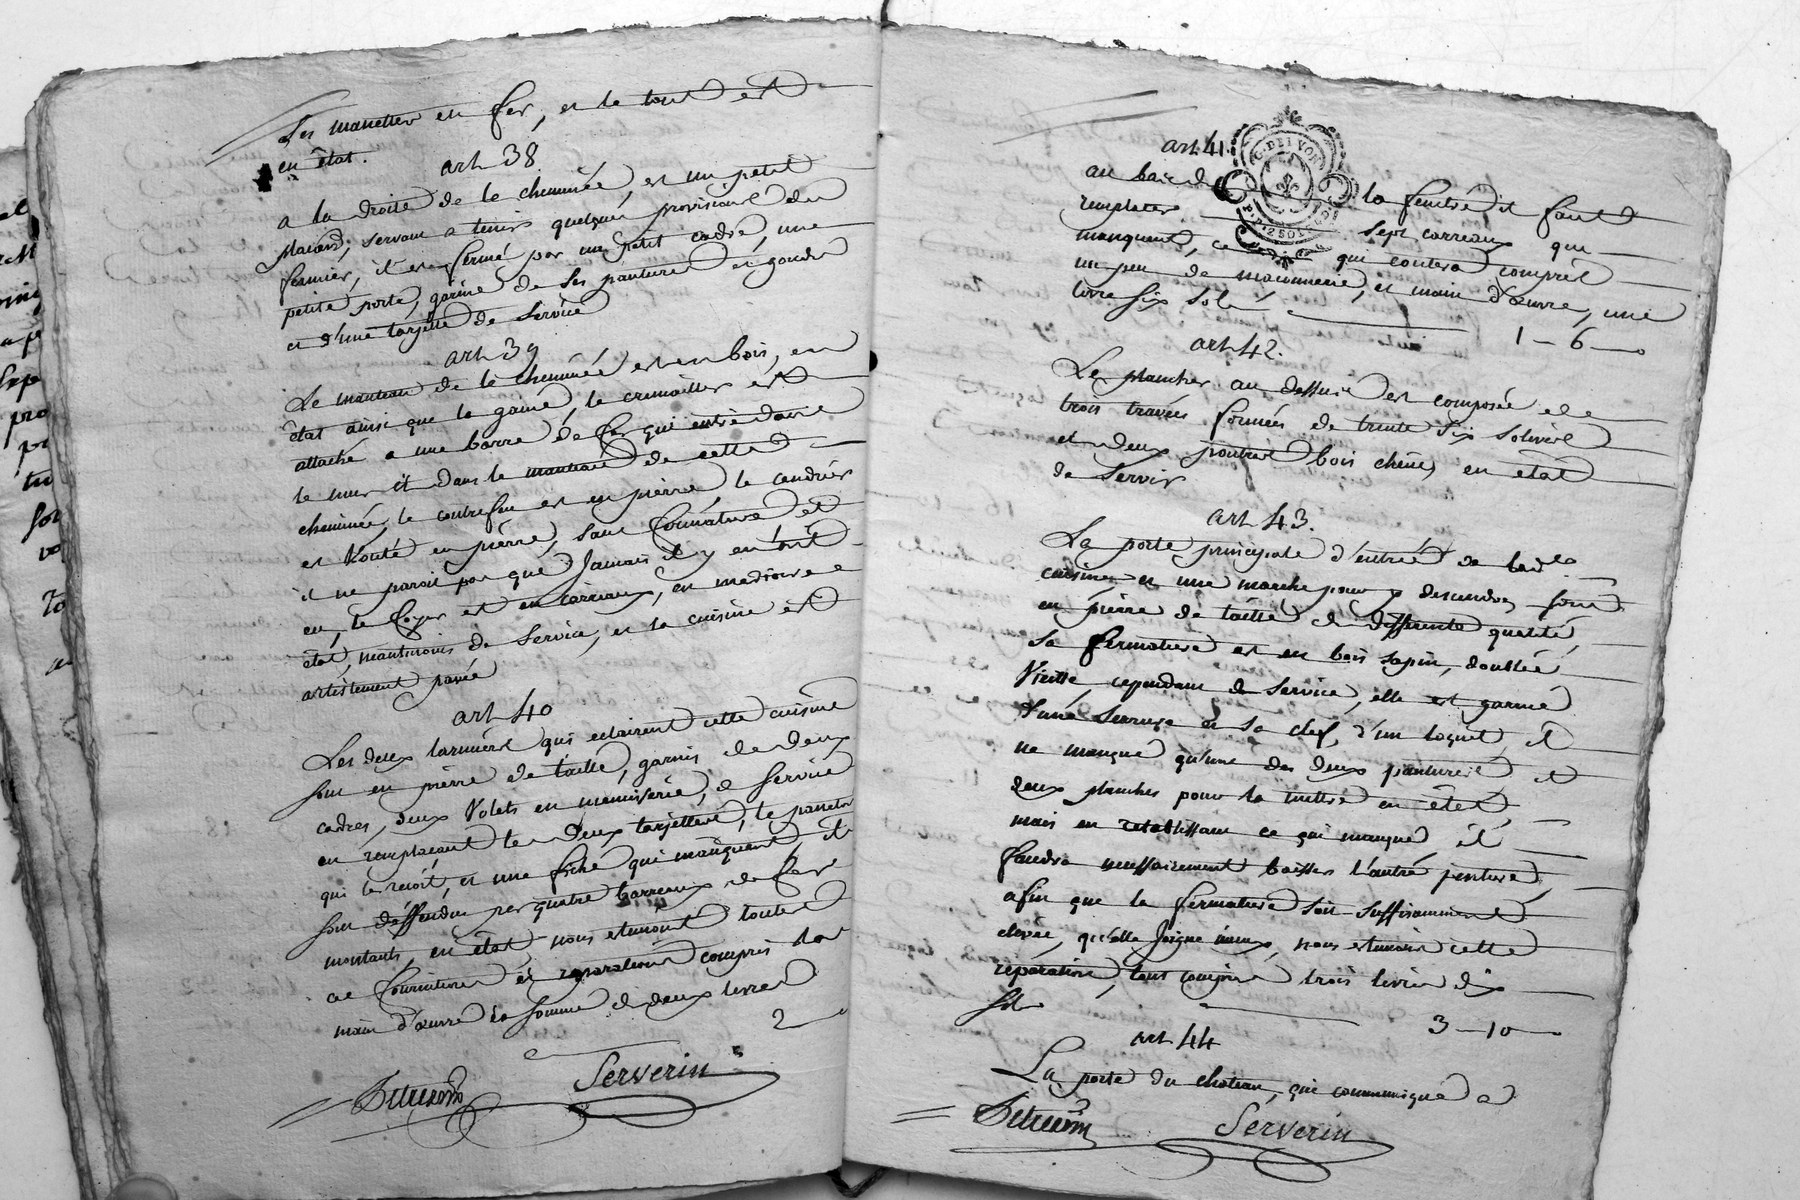 Les manettes en fer, et le tout est
en état.
art 38
a la droite de la cheminée, est un petit
placard, servant a tenir quelques provisions du
fermier, il est fermé par un petit cadre, une
petite porte, garnie de ses pantures et gonds
et d'une targette de service
art 39
Le manteau de la cheminée est en bois, en
état ainsi que la gainé, la cremaillere est
attaché a une barre de fer qui entre dans
le mur et dans le manteau de cette
cheminée, le contrefeu est en pierre le cendrier
est vouté en pierre, sans fermature et
il ne paroit pas que jamais il y en ait
eu, le foyer est en carreaux, en mediocre
état, neantmoins de service, et la cuisine est
artistement pavée
art 40
Les deux larmiers qui eclairent cette cuisine
sont en pierre de taille, garnis de deux
cadres, deux volets en menuiserie, de service
en remplacant les deux targettes, le paneton
qui le reçoit, et une fiche qui manquent, ils
sont déffendus par quatre barreaux de fer
montants, en état nous estimons toutes
ces fournitures et reparations compris la
main d'œuvre la somme de deux livres
2
Serverin
art 41
au bas de la fenêtre il faut
remplacer sept carreaux qui
manquent, ce qui coutera compris
un peu de maconnerie, et main d'œuvre, une
livre six sols
1 - 6
art 42.
Le plancher au dessus est composée de
trois travées formées de trente six soliveaux
et deux poutres bois chêne, en état
de servir
art 43.
La porte principale d'entrée de lad.
cuisine et une marche pour y descendre, sont
en pierre de taille de differente qualité,
sa fermature est en bois sapin, doublée
vieille cependant de service, elle est garnie
d'une serrure et sa clef, d'un loquet, il
ne manque qu'une des deux pantures et
deux planches pour la mettre en état,
mais en retablissant ce qui manque il
faudra necessairement baisser l'autre penture,
afin que la fermature soit suffisamment
elevée, qu'elle joigne mieux, nous estimons cette
réparation, tout compris trois livres dix
sols
3 - 10
art 44
La porte du chateau, qui communique a
Serverin